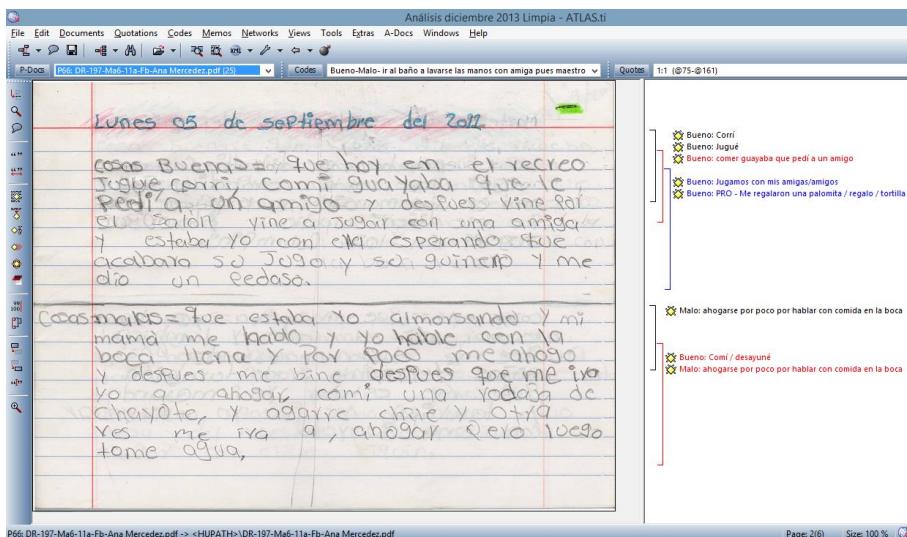 Análisis diciembre 2013 Limpia - ATLAS.ti
File Edit Documents Quotations Codes Memos Networks Views Tools Extras A-Docs Windows Help
P-Docs P66: DR-197-Ma6-11a-Fb-Ana Mercedez.pdf (25) Codes Bueno-Malo- ir al baño a lavarse las manos con amiga pues maestro Quotes 1:1 (@75-@161)
Lunes 05 de septiembre del 2011
cosas Buenas = que hoy en el recreo
Jugue corri, comi guayaba que le
Pedí a un amigo y despues vine por
el salón vine a jugar con una amiga
y estaba yo con ella esperando que
acabara su Jugo y su guineno y me
dio un pedaso.
Cosas malas = que estaba yo almorsando y mi
mamá me hablo y yo hable con la
boca llena y Por Poco me ahogo
y despues me bine despues que me iva
yo a ahogar, comi una rodaja de
chayote, y agarre chile y otra
ves me iva a, ahogar pero luego
tome agua,
Bueno: Corrí
Bueno: Jugué
Bueno: comer guayaba que pedí a un amigo
Bueno: Jugamos con mis amigas/amigos
Bueno: PRO - Me regalaron una palomita / regalo / tortilla
Malo: ahogarse por poco por hablar con comida en la boca
Bueno: Comí / desayuné
Malo: ahogarse por poco por hablar con comida en la boca
P66: DR-197-Ma6-11a-Fb-Ana Mercedez.pdf -> <HUPATH>\DR-197-Ma6-11a-Fb-Ana Mercedez.pdf Page: 2(6) Size: 100 %